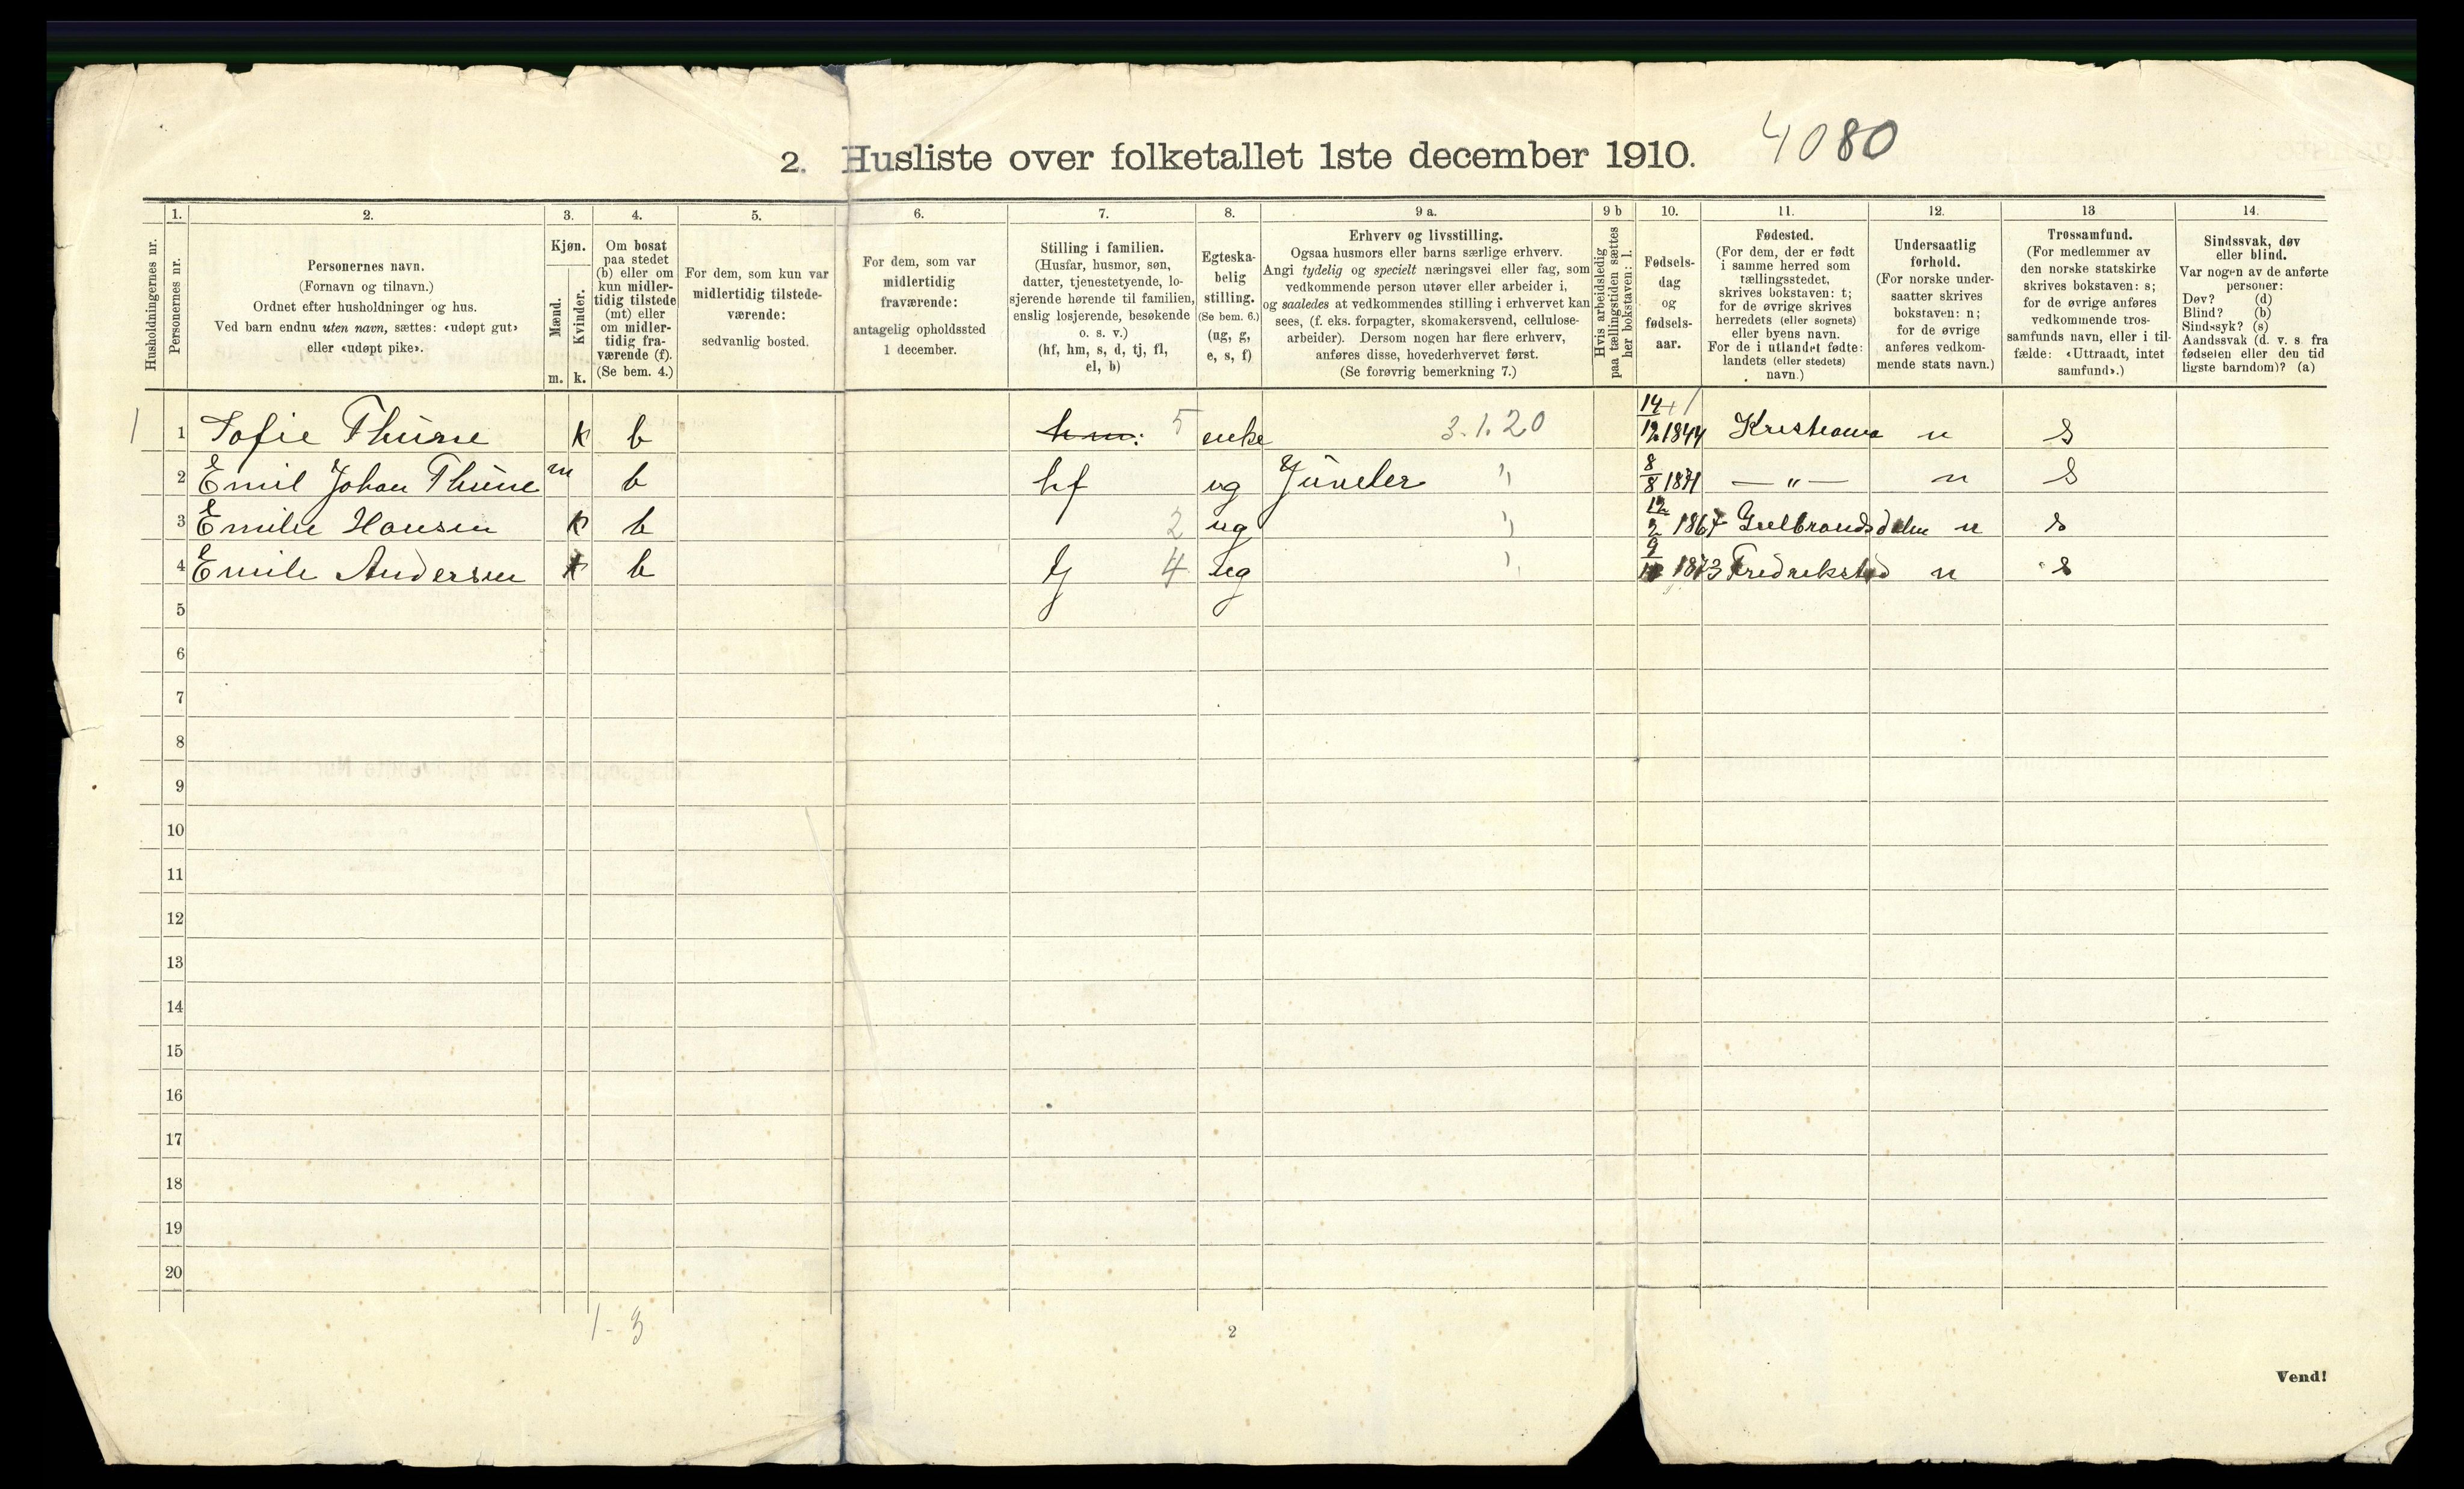 2. Husliste over folketallet 1ste december 1910. 4080
1. 2. 3. 4. 5. 6. 7. 8. 9 a. 9 b 10. 11. 12. 13 14.
Husholdningernes nr.
Personernes nr.
Personernes navn.
(Fornavn og tilnavn.)
Ordnet efter husholdninger og hus.
Ved barn endnu uten navn, sættes: «udøpt gut»
eller «udøpt pike».
Kjøn.
Mænd.
Kvinder.
m. k.
Om bosat
paa stedet
(b) eller om
kun midler-
tidig tilstede
(mt) eller
om midler-
tidig fra-
værende (f).
(Se bem. 4.)
For dem, som kun var
midlertidig tilstede-
værende:
sedvanlig bosted.
For dem, som var
midlertidig
fraværende:
antagelig opholdssted
1 december.
Stilling i familien.
(Husfar, husmor, søn,
datter, tjenestetyende, lo-
sjerende hørende til familien,
enslig losjerende, besøkende
o. s. v.)
(hf, hm, s, d, tj, fl,
el, b)
Egteska-
belig
stilling.
(Se bem. 6.)
(ug, g,
e, s, f)
Erhverv og livsstilling.
Ogsaa husmors eller barns særlige erhverv.
Angi tydelig og specielt næringsvei eller fag, som
vedkommende person utøver eller arbeider i,
og saaledes at vedkommendes stilling i erhvervet kan
sees, (f. eks. forpagter, skomakersvend, cellulose-
arbeider). Dersom nogen har flere erhverv,
anføres disse, hovederhvervet først.
(Se forøvrig bemerkning 7.)
Hvis arbeidsledig
paa tællingstiden sættes
her bokstaven: l.
Fødsels-
dag
og
fødsels-
aar.
Fødested.
(For dem, der er født
i samme herred som
tællingsstedet,
skrives bokstaven: t;
for de øvrige skrives
herredets (eller sognets)
eller byens navn.
For de i utlandet fødte:
landets (eller stedets)
navn.)
Undersaatlig
forhold.
(For norske under-
saatter skrives
bokstaven: n;
for de øvrige
anføres vedkom-
mende stats navn.)
Trossamfund.
(For medlemmer av
den norske statskirke
skrives bokstaven: s;
for de øvrige anføres
vedkommende tros-
samfunds navn, eller i til-
fælde: «Uttraadt, intet
samfund».)
Sindssvak, døv
eller blind.
Var nogen av de anførte
personer:
Døv? (d)
Blind? (b)
Sindssyk? (s)
Aandssvak (d. v. s. fra
fødselen eller den tid
ligste barndom)? (a)
1 1 Sofie Thune k b hm: 5 enke 3.1.20 14/12 1844 Kristiania n s
2 Emil Johan Thune m b hf ug Juveler " 8/8 1871 — " — n s
3 Emilie Hansen k b 2 ug " 12/2 1867 Gulbrandsdalen n s
4 Emilie Andersen k b tj 4 ug " 1873 Fredrikstad n s
5
6
7
8
9
10
11
12
13
14
15
16
17
18
19
20
1 - 3
2
Vend!